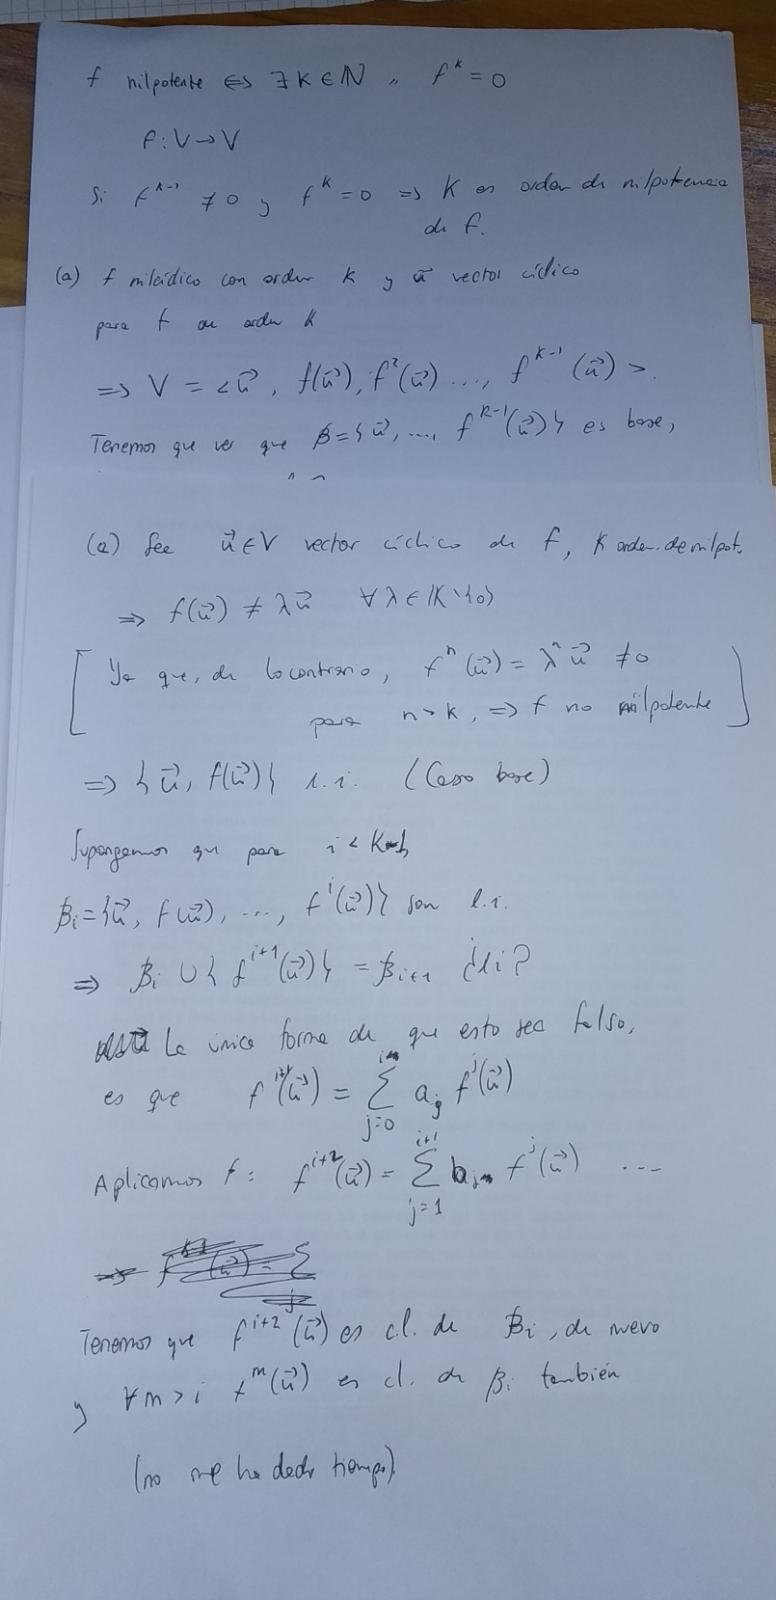 f nilpotente ⇔ ∃ K ∈ ℕ ,, f^k = 0
f: V → V
Si f^{k-1} ≠ 0 y f^k = 0 ⇒ K es orden de nilpotencia
de f.
(a) f con orden k y u⃗ vector cíclico
para f de orden k
⇒ V = <u⃗, f(u⃗), f²(u⃗) ..., f^{k-1}(u⃗)>.
Tenemos que ver que β = {u⃗, ..., f^{k-1}(u⃗)} es base,
(a) Sea u⃗ ∈ V vector cíclico de f, K orden. de nilpot.
⇒ f(u⃗) ≠ λu⃗ ∀λ ∈ 𝕂\{0}
[ Ya que, de lo contrario, f^n(u⃗) = λ^n u⃗ ≠ 0
para n > k, ⇒ f no nilpotente ]
⇒ {u⃗, f(u⃗)} l.i. (Caso base)
Supongamos que para i < K-1,
β_i = {u⃗, f(u⃗), ..., f^i(u⃗)} son l.i.
⇒ β_i ∪ {f^{i+1}(u⃗)} = β_{i+1} ¿li?
La única forma de que esto sea falso,
es que f^{i+1}(u⃗) = Σ_{j=0}^{i} a_j f^j(u⃗)
Aplicamos f: f^{i+2}(u⃗) = Σ_{j=1}^{i+1} b_j f^j(u⃗) ...
Tenemos que f^{i+2}(u⃗) es c.l. de β_i, de nuevo
y ∀m > i f^m(u⃗) es cl. de β_i también
(no me ha dado tiempo)